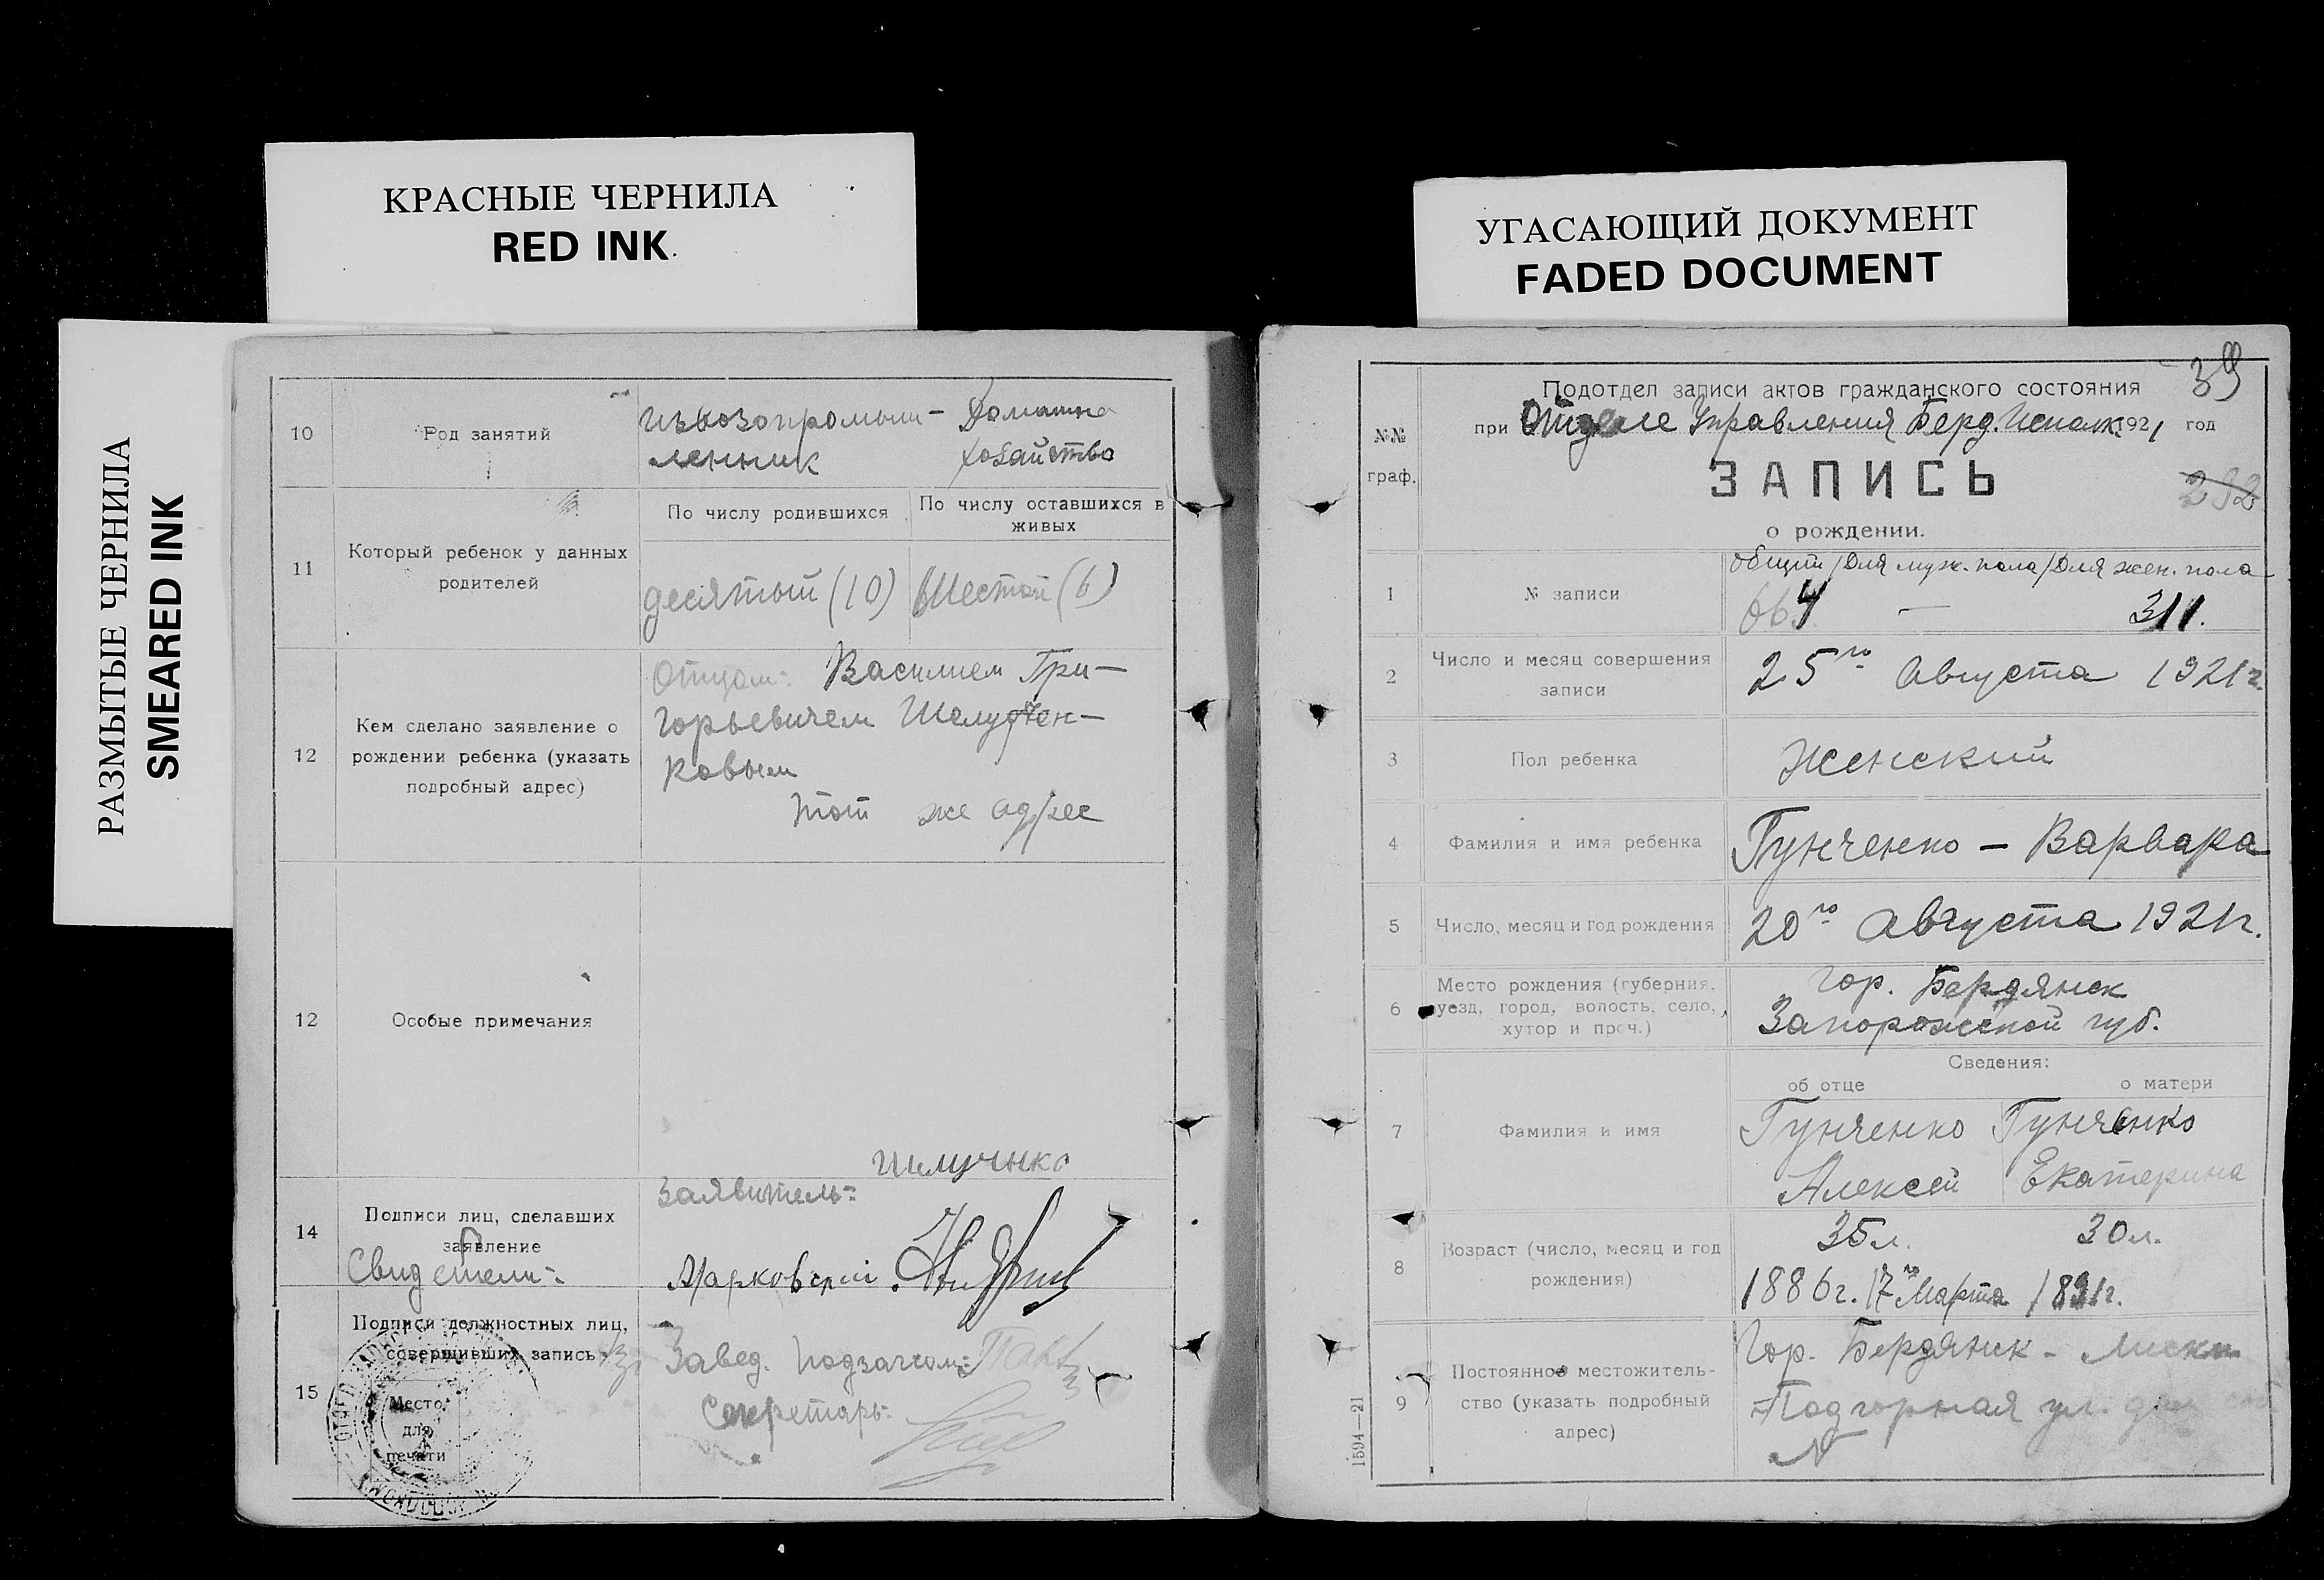 КРАСНЫЕ ЧЕРНИЛА
RED INK
РАЗМЫТЫЕ ЧЕРНИЛА
SMEARED INK
10
Род занятий
извозопромыш- Домашнее
ленник хозяйство
11
Который ребенок у данных
родителей
По числу родившихся
По числу оставшихся в
живых
десятый (10)
Шестой (6)
12
Кем сделано заявление о
рождении ребенка (указать
подробный адрес)
Отцом: Василием Гри-
горьевичем
ковым
тот же адрес
12
Особые примечания
14
Подписи лиц, сделавших
заявление
Свидетели:
Заявитель:
Марковский
15
Подписи должностных лиц,
совершивших запись
Место
для
печати
Завед. подзагсом:
Секретарь:
УГАСАЮЩИЙ ДОКУМЕНТ
FADED DOCUMENT
39
Подотдел записи актов гражданского состояния
при Отделе Управления Берд. Исполк. 1921 год
№№
граф.
ЗАПИСЬ
292
о рождении.
1
№ записи
общий / Для муж. пола / Для жен. пола
664 — 311.
2
Число и месяц совершения
записи
25го Августа 1921 г.
3
Пол ребенка
Женский
4
Фамилия и имя ребенка
Гунченко — Варвара
5
Число, месяц и год рождения
20го Августа 1921 г.
6
Место рождения (губерния,
уезд, город, волость, село,
хутор и проч.)
гор. Бердянск
Запорожской губ.
Сведения:
об отце
о матери
7
Фамилия и имя
Гунченко Гунченко
Алексей Екатерина
8
Возраст (число, месяц и год
рождения)
35 л. 30 л.
1886 г. 17го Марта 1891 г.
9
Постоянное местожитель-
ство (указать подробный
адрес)
Гор. Бердянск -
Подгорная ул.
№
1594—21